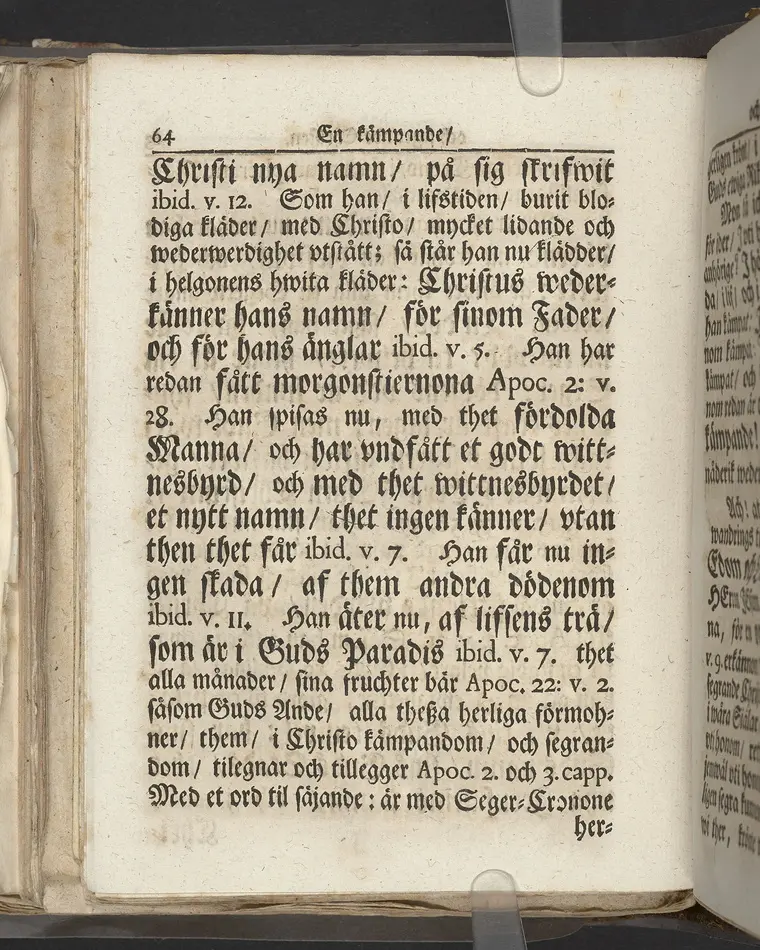 64 En kämpande/
Christi nya namn/ på sig skrifwit
ibid. v. 12. Som han/ i lifstiden/ burit blo-
diga kläder/ med Christo/ mycket lidande och
wederwerdighet vtstått; så står han nu klädder/
i helgonens hwita kläder: Christus weder-
känner hans namn/ för sinom Fader/
och för hans änglar ibid. v. 5. Han har
redan fått morgonstiernona Apoc. 2: v.
28. Han spisas nu, med thet fördolda
Manna/ och har vndfått et godt witt-
nesbyrd/ och med thet wittnesbyrdet/
et nytt namn/ thet ingen känner/ vtan
then thet får ibid. v. 7. Han får nu in-
gen skada/ af them andra dödenom
ibid. v. 11. Han äter nu, af lifsens trä/
som är i Guds Paradis ibid. v. 7. thet
alla månader/ sina fruchter bär Apoc. 22: v. 2.
såsom Guds Ande/ alla theßa herliga förmoh-
ner/ them/ i Christo kämpandom/ och segran-
dom/ tilegnar och tillegger Apoc. 2. och 3. capp.
Med et ord til säjande: är med Seger-Cronone
her-